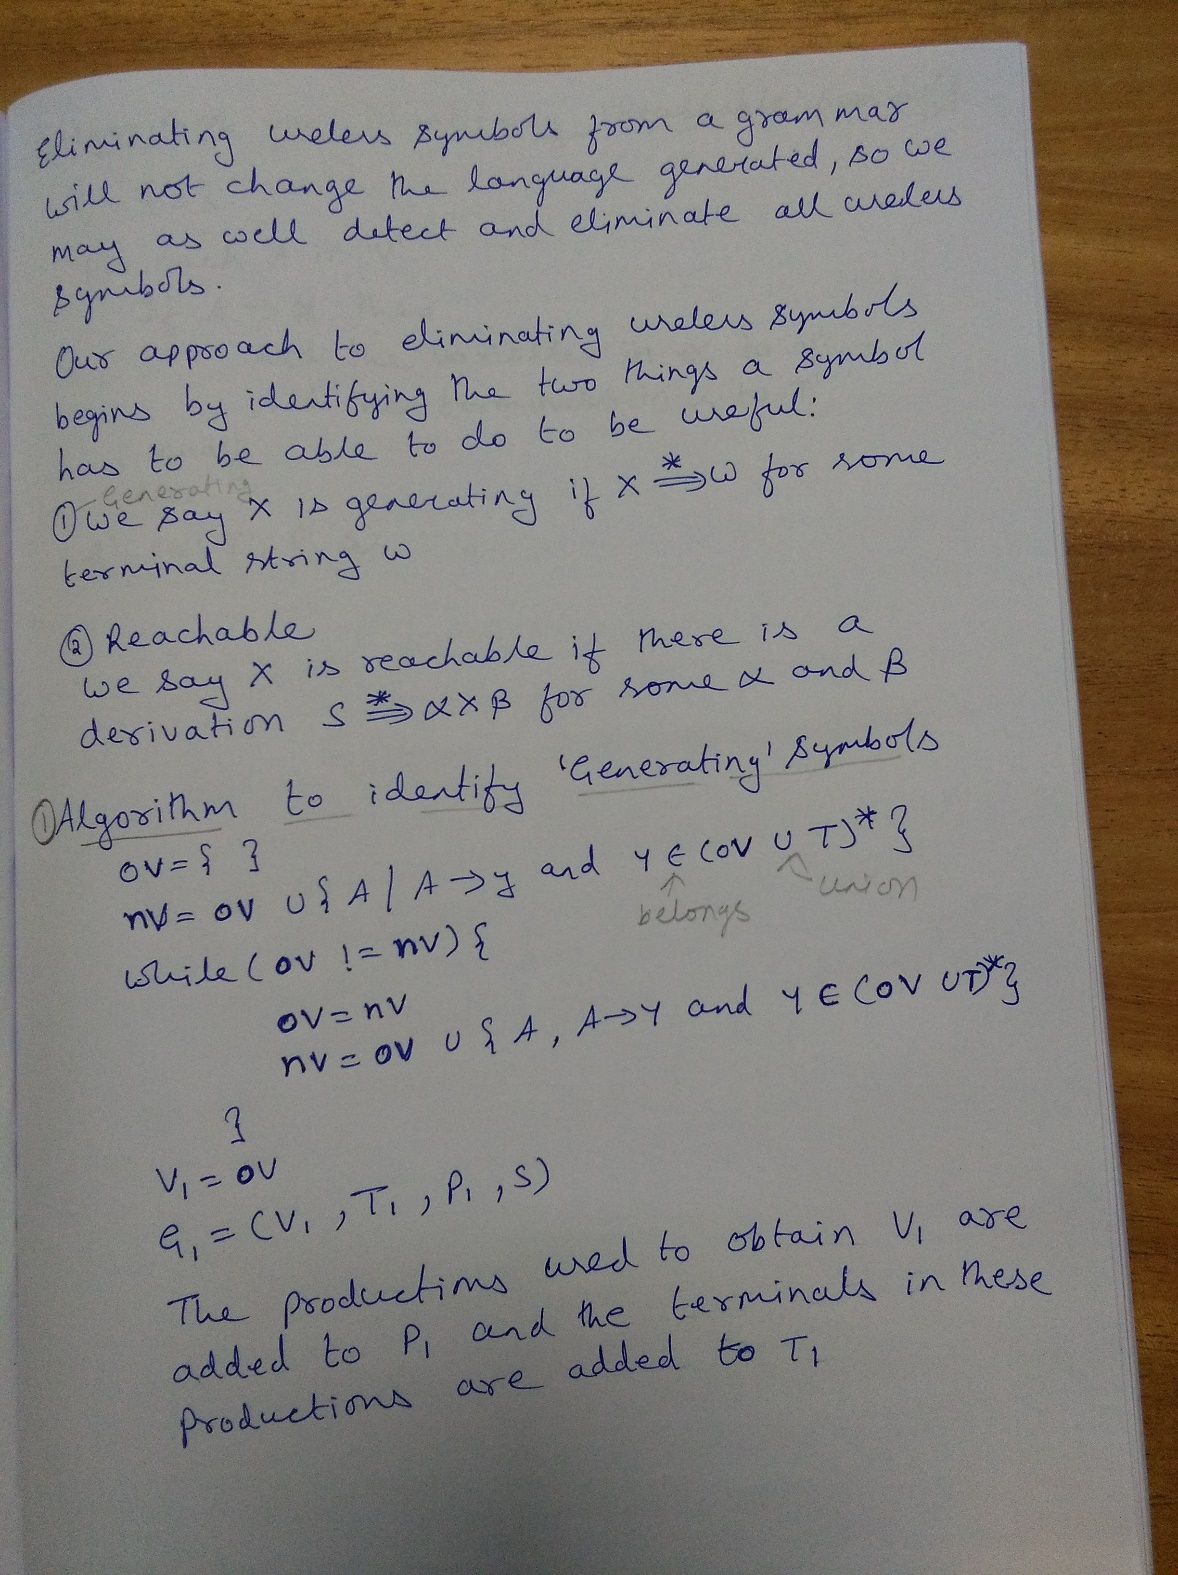 Eliminating useless symbols from a grammar
will not change the language generated, so we
may as well detect and eliminate all useless
symbols.
Our approach to eliminating useless symbols
begins by identifying the two things a symbol
has to be able to do to be useful:
Generating
① We say X is generating if X *⇒ w for some
terminal string w
② Reachable
We say X is reachable if there is a
derivation S *⇒ αXβ for some α and β
① Algorithm to identify 'Generating' symbols
OV = { }
nV = OV ∪ { A / A → y and y ∈ (OV ∪ T)* }
belongs union
while ( OV != nV ) {
OV = nV
nV = OV ∪ { A, A → y and y ∈ (OV ∪ T)* }
}
V₁ = OV
G₁ = (V₁, T₁, P₁, S)
The productions used to obtain V₁ are
added to P₁ and the terminals in these
productions are added to T₁